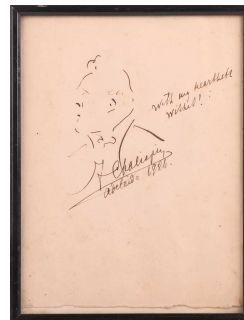 with my heartiest
wishes!
F Chaliapin
Adelaide 1926.